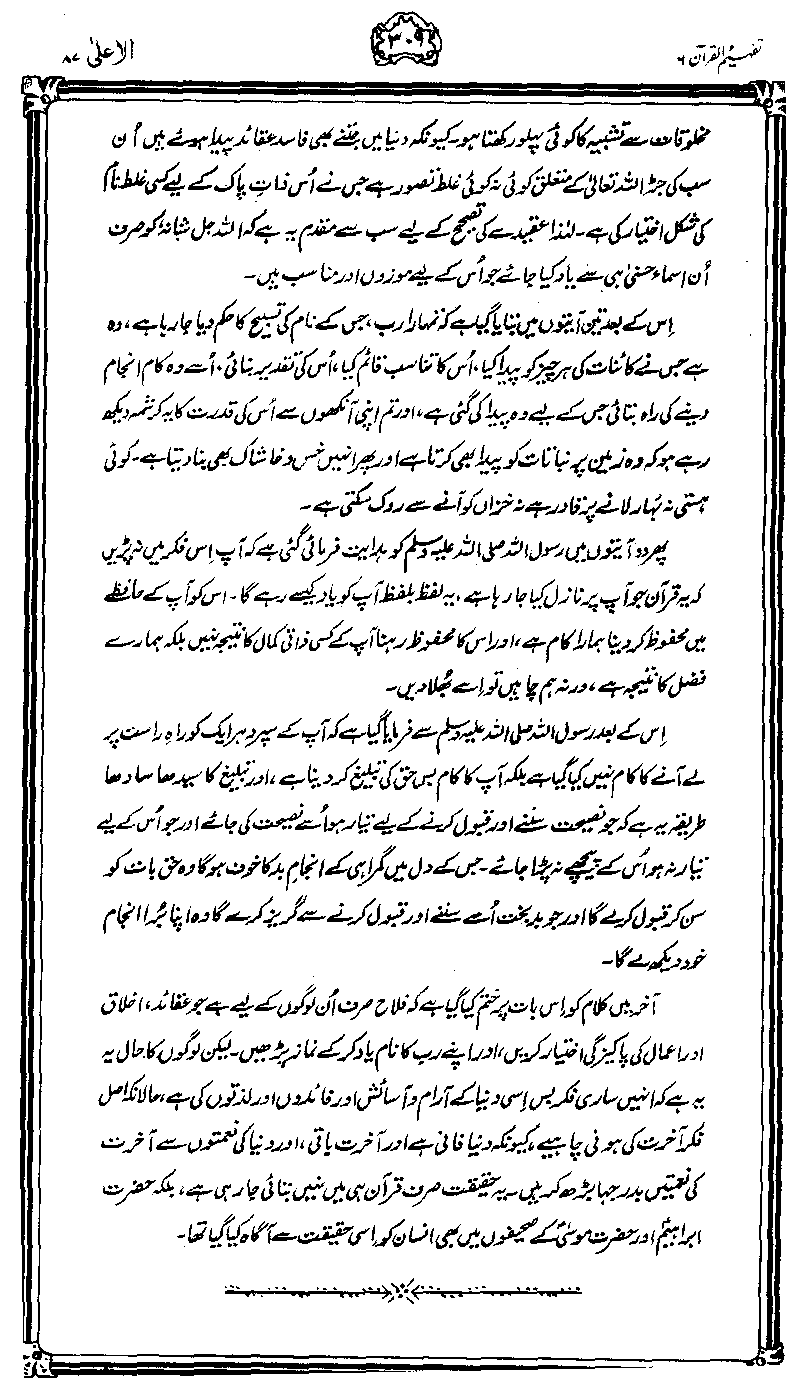 تفہیم القرآن ۶
۳۰۹
الاعلیٰ ۸۷
مخلوقات سے تشبیہ کا کوئی پہلو رکھتا ہو۔ کیونکہ دنیا میں جتنے بھی فاسد عقائد پیدا ہوئے ہیں اُن
سب کی جڑ اللہ تعالیٰ کے متعلق کوئی نہ کوئی غلط تصور ہے جس نے اُس ذاتِ پاک کے لیے کسی غلط نام
کی شکل اختیار کی ہے۔ لہٰذا عقیدے کی تصحیح کے لیے سب سے مقدم یہ ہے کہ اللہ جل شانہٗ کو صرف
اُن اسماء حسنیٰ ہی سے یاد کیا جائے جو اُس کے لیے موزوں اور مناسب ہیں۔
اِس کے بعد تین آیتوں میں بتایا گیا ہے کہ تمہارا رب، جس کے نام کی تسبیح کا حکم دیا جا رہا ہے، وہ
ہے جس نے کائنات کی ہر چیز کو پیدا کیا، اُس کا تناسب قائم کیا، اُس کی تقدیر بنائی، اُسے وہ کام انجام
دینے کی راہ بتائی جس کے لیے وہ پیدا کی گئی ہے، اور تم اپنی آنکھوں سے اُس کی قدرت کا یہ کرشمہ دیکھ
رہے ہو کہ وہ زمین پر نباتات کو پیدا بھی کرتا ہے اور پھر انہیں خس و خاشاک بھی بنا دیتا ہے۔ کوئی
ہستی نہ بہار لانے پر قادر ہے نہ خزاں کو آنے سے روک سکتی ہے۔
پھر دو آیتوں میں رسول اللہ صلی اللہ علیہ وسلم کو ہدایت فرمائی گئی ہے کہ آپ اِس فکر میں نہ پڑیں
کہ یہ قرآن جو آپ پر نازل کیا جا رہا ہے، یہ لفظ بلفظ آپ کو یاد کیسے رہے گا۔ اس کو آپ کے حافظے
میں محفوظ کر دینا ہمارا کام ہے، اور اس کا محفوظ رہنا آپ کے کسی ذاتی کمال کا نتیجہ نہیں بلکہ ہمارے
فضل کا نتیجہ ہے، ورنہ ہم چاہیں تو اِسے بُھلا دیں۔
اِس کے بعد رسول اللہ صلی اللہ علیہ وسلم سے فرمایا گیا ہے کہ آپ کے سپرد ہر ایک کو راہِ راست پر
لے آنے کا کام نہیں کیا گیا ہے بلکہ آپ کا کام بس حق کی تبلیغ کر دینا ہے، اور تبلیغ کا سیدھا سادھا
طریقہ یہ ہے کہ جو نصیحت سننے اور قبول کرنے کے لیے تیار ہو اُسے نصیحت کی جائے اور جو اُس کے لیے
تیار نہ ہو اُس کے پیچھے نہ پڑا جائے۔ جس کے دل میں گمراہی کے انجامِ بد کا خوف ہوگا وہ حق بات کو
سن کر قبول کر لے گا اور جو بدبخت اُسے سننے اور قبول کرنے سے گریز کرے گا وہ اپنا بُرا انجام
خود دیکھ لے گا۔
آخر میں کلام کو اِس بات پر ختم کیا گیا ہے کہ فلاح صرف اُن لوگوں کے لیے ہے جو عقائد، اخلاق
اور اعمال کی پاکیزگی اختیار کریں، اور اپنے رب کا نام یاد کر کے نماز پڑھیں۔ لیکن لوگوں کا حال یہ
یہ ہے کہ انہیں ساری فکر بس اِسی دنیا کے آرام و آسائش اور فائدوں اور لذتوں کی ہے، حالانکہ اصل
فکر آخرت کی ہونی چاہیے، کیونکہ دنیا فانی ہے اور آخرت باقی، اور دنیا کی نعمتوں سے آخرت
کی نعمتیں بدرجہا بڑھ کر ہیں۔ یہ حقیقت صرف قرآن ہی میں نہیں بتائی جا رہی ہے، بلکہ حضرت
ابراہیمؑ اور حضرت موسیٰؑ کے صحیفوں میں بھی انسان کو اِسی حقیقت سے آگاہ کیا گیا تھا۔